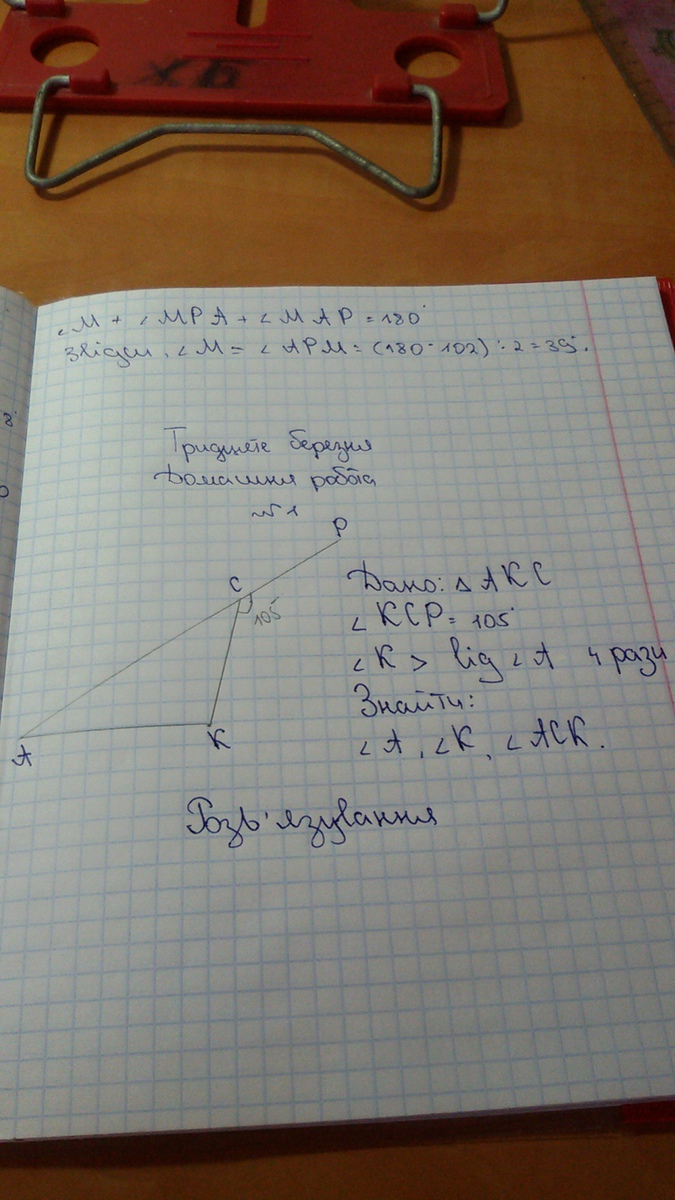 ХБ
∠M + ∠MPA + ∠MAP = 180°
звідси, ∠M = ∠APM = (180° - 102) : 2 = 39°.
8°
0
Тридцяте березня
Домашня робота
№1
P
C
105°
A
K
Дано: △AKC
∠KCP = 105°
∠K > від ∠A 4 рази
Знайти:
∠A, ∠K, ∠ACK.
Розв'язування